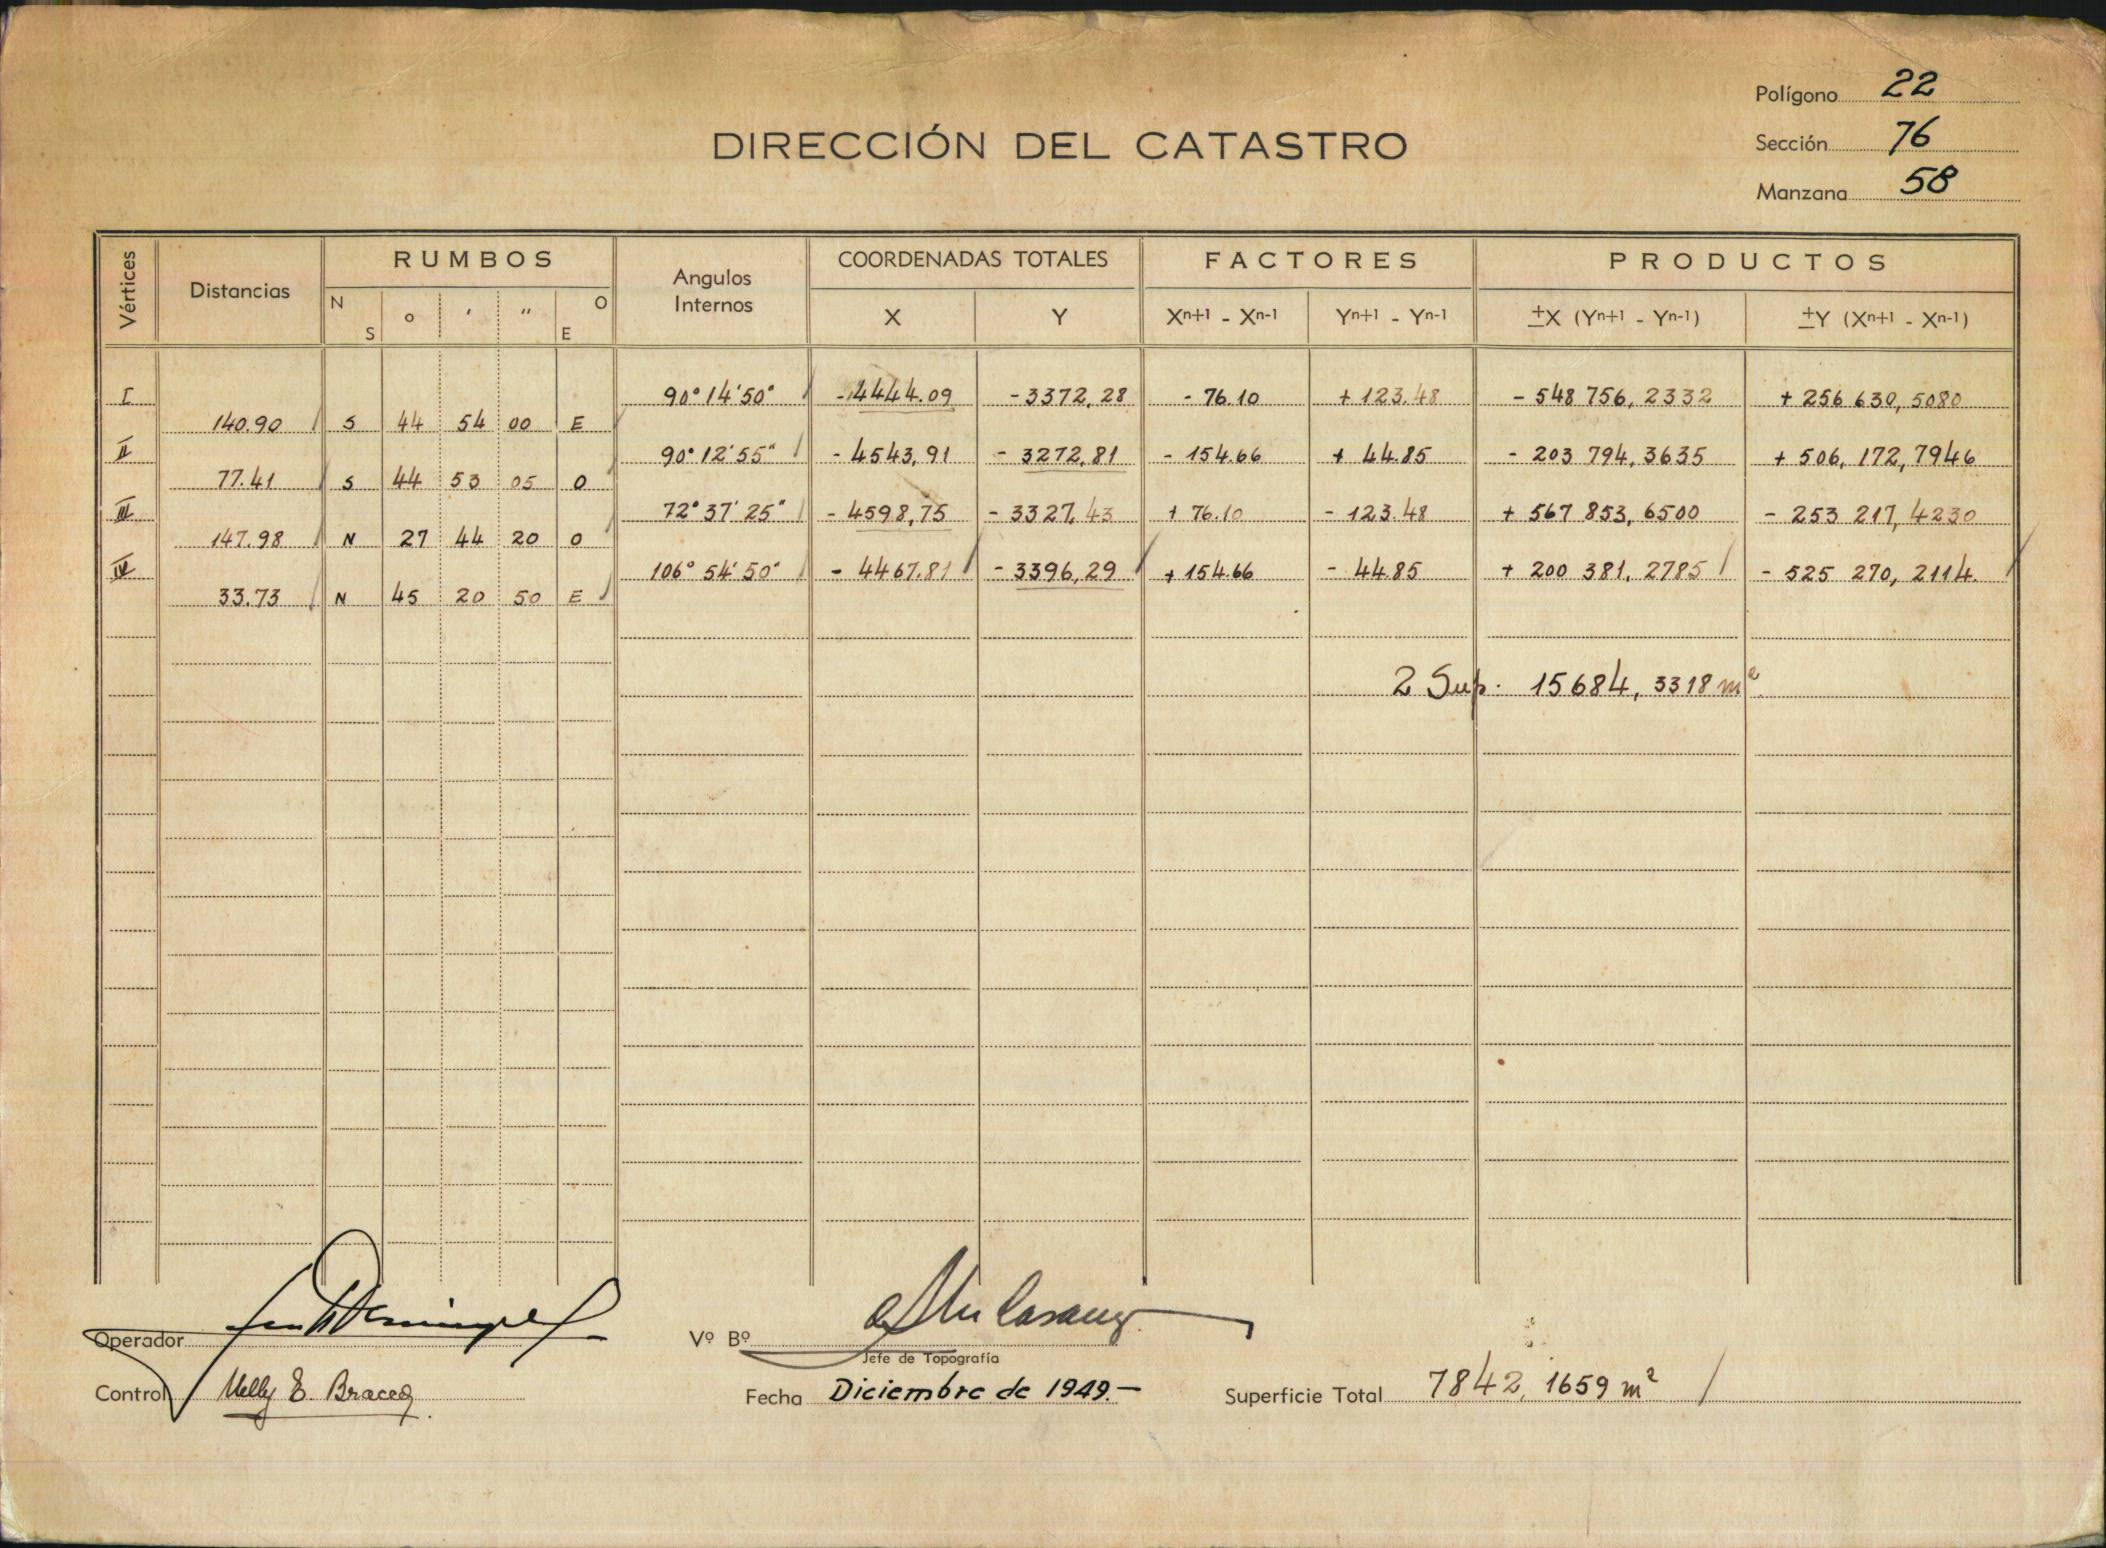 Polígono 22
DIRECCIÓN DEL CATASTRO
Sección 76
Manzana 58
Vértices Distancias RUMBOS Angulos Internos COORDENADAS TOTALES FACTORES PRODUCTOS
N S o ʼ ʼʼ O E X Y Xn+1 - Xn-1 Yn+1 - Yn-1 ±X (Yn+1 - Yn-1) ±Y (Xn+1 - Xn-1)
I 90° 14' 50" - 4444.09 - 3372,28 - 76.10 + 123.48 - 548 756,2332 + 256 630,5080
140.90 S 44 54 00 E
II 90° 12' 55" - 4543,91 - 3272,81 - 154.66 + 44.85 - 203 794,3635 + 506,172,7946
77.41 S 44 53 05 O
III 72° 37' 25" - 4598,75 - 3327,43 + 76.10 - 123.48 + 567 853,6500 - 253 217,4230
147.98 N 27 44 20 O
IV 106° 54' 50" - 4467.81 - 3396,29 + 154.66 - 44.85 + 200 381,2785 - 525 270,2114.
33.73 N 45 20 50 E
2 Sup. 15684,3318 m²
Operador
Vº Bº
Jefe de Topografía
Control Nelly E. Braceq
Fecha Diciembre de 1949.-
Superficie Total 7842,1659 m²